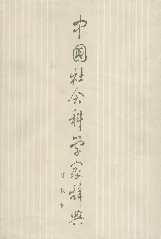 中國社会科学家辞典